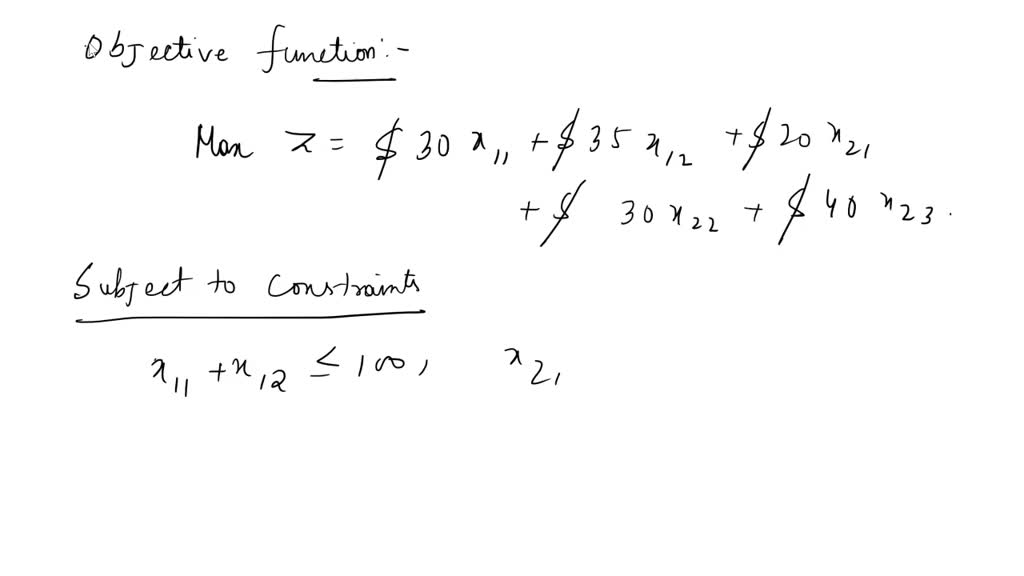 Objective function:-
Max Z = $ 30 x11 + $ 35 x12 + $ 20 x21
+ $ 30 x22 + $ 40 x23.
Subject to constraints
x11 + x12 ≤ 100, x21